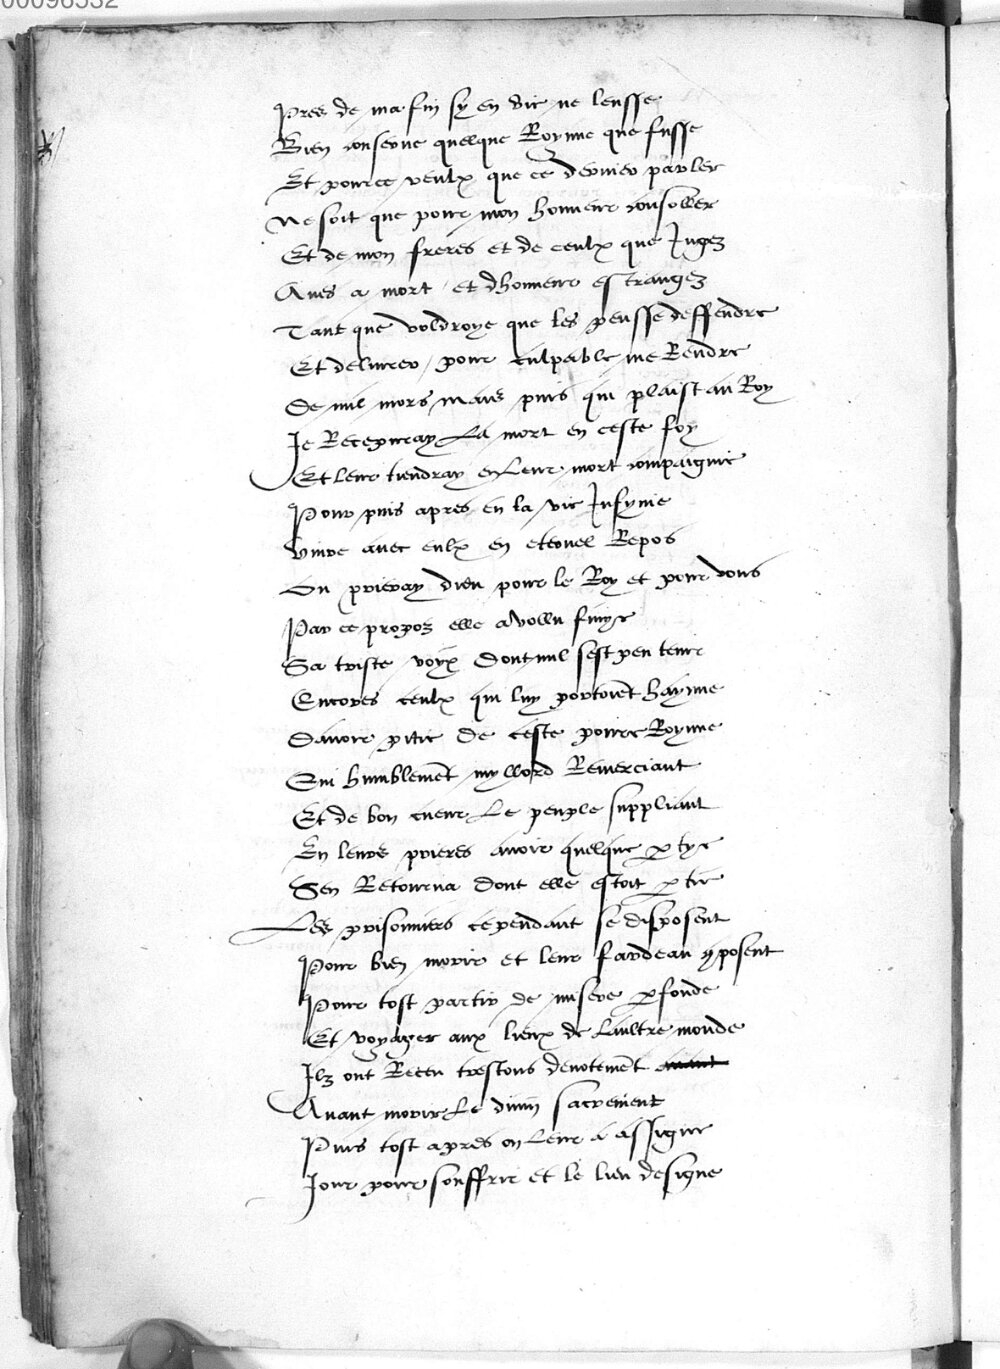 00096332
Pres de ma fin sy en vie ne leusse
Bien conserue quelque Royne que fusse
Et pource veulx que ce dernier parler
Ne soit que pour mon honneur consoller
Et de mon freres et de ceulx que Jugez
Aues a mort et dhonneur estrangez
Tant que voldroye que les peusse deffendre
Et deliurer pour culpable me Rendre
De mil mors mais puis qui plaist au Roy
Je Recepuray La mort en ceste foy
Et leur tiendray en Leur mort compaignie
Pour puis apres en la vie Infynie
Viure auec eulx en eternel Repos
Ou prieray dieu pour le Roy et pour vous
Par ce propoz elle a vollu finyr
Sa triste voyx dont nul sest peu tenir
Encores ceulx qui luy portoient hayne
Dauoir pitie de ceste poure Royne
Qui humblement mylord Remerciant
Et de bon cueur Le peuple suppliant
En leurs prieres auoir quelque ptye
Sen Retourna dont elle estoit ptie
Les prisonniers cependant se disposent
Pour bien morir et leur fardeau posent
Pour tost partir de misere pfonde
Et voyager aux lieux de Laultre monde
Ilz ont Receu trestous deuotement
Auant morir Le diuin sacrement
Puis tost apres on Leur a assigne
Jour pour souffrir et le lieu designe